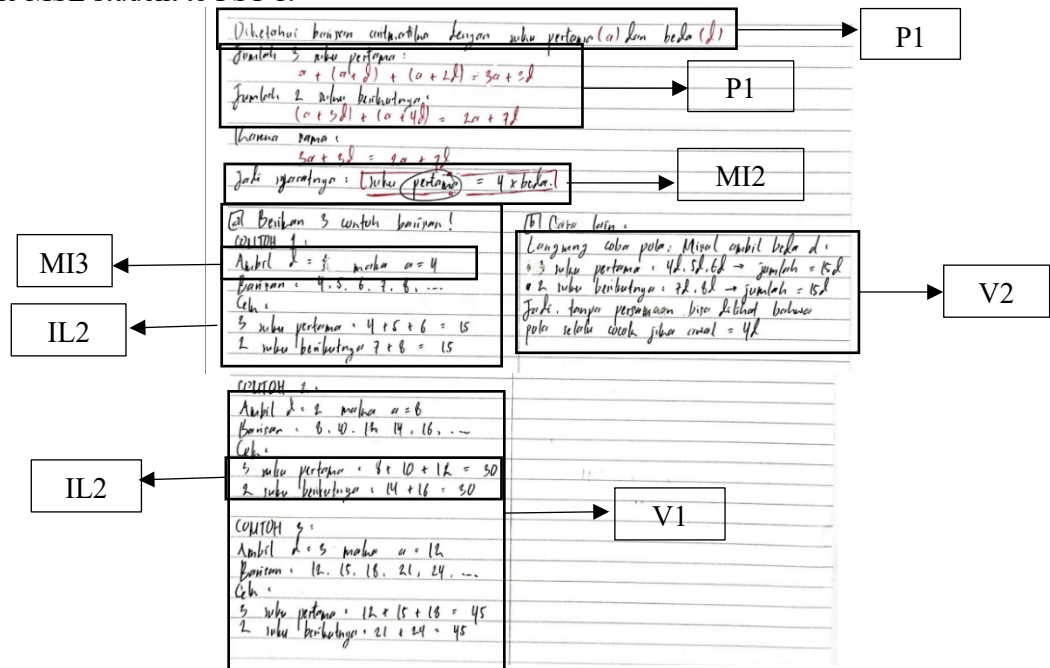 P1
Diketahui barisan aritmatika dengan suku pertama (a) dan beda (d)
Jumlah 3 suku pertama :
a + (a+d) + (a+2d) = 3a + 3d
P1
Jumlah 2 suku berikutnya :
(a+3d) + (a+4d) = 2a + 7d
Karena sama :
3a + 3d = 2a + 7d
Jadi syaratnya : suku pertama = 4 x beda.
MI2
a Berikan 3 contoh barisan !
CONTOH 1 :
MI3
Ambil d = maka a = 4
Barisan : 4, 5, 6, 7, 8, ...
Cek :
IL2
3 suku pertama : 4 + 5 + 6 = 15
2 suku berikutnya 7 + 8 = 15
b Cara lain :
Langsung coba pola : Misal ambil beda d :
• 3 suku pertama : 4d, 5d, 6d → jumlah = 15d
• 2 suku berikutnya : 7d, 8d → jumlah = 15d
Jadi, tanpa persamaan bisa dilihat bahwa
pola selalu cocok jika awal = 4d
V2
CONTOH 2 :
Ambil d = 2 maka a = 8
Barisan : 8, 10, 12, 14, 16, ...
Cek :
3 suku pertama : 8 + 10 + 12 = 30
2 suku berikutnya : 14 + 16 = 30
IL2
V1
CONTOH 3 :
Ambil d = 3 maka a = 12
Barisan : 12, 15, 18, 21, 24, ...
Cek :
3 suku pertama : 12 + 15 + 18 = 45
2 suku berikutnya : 21 + 24 = 45